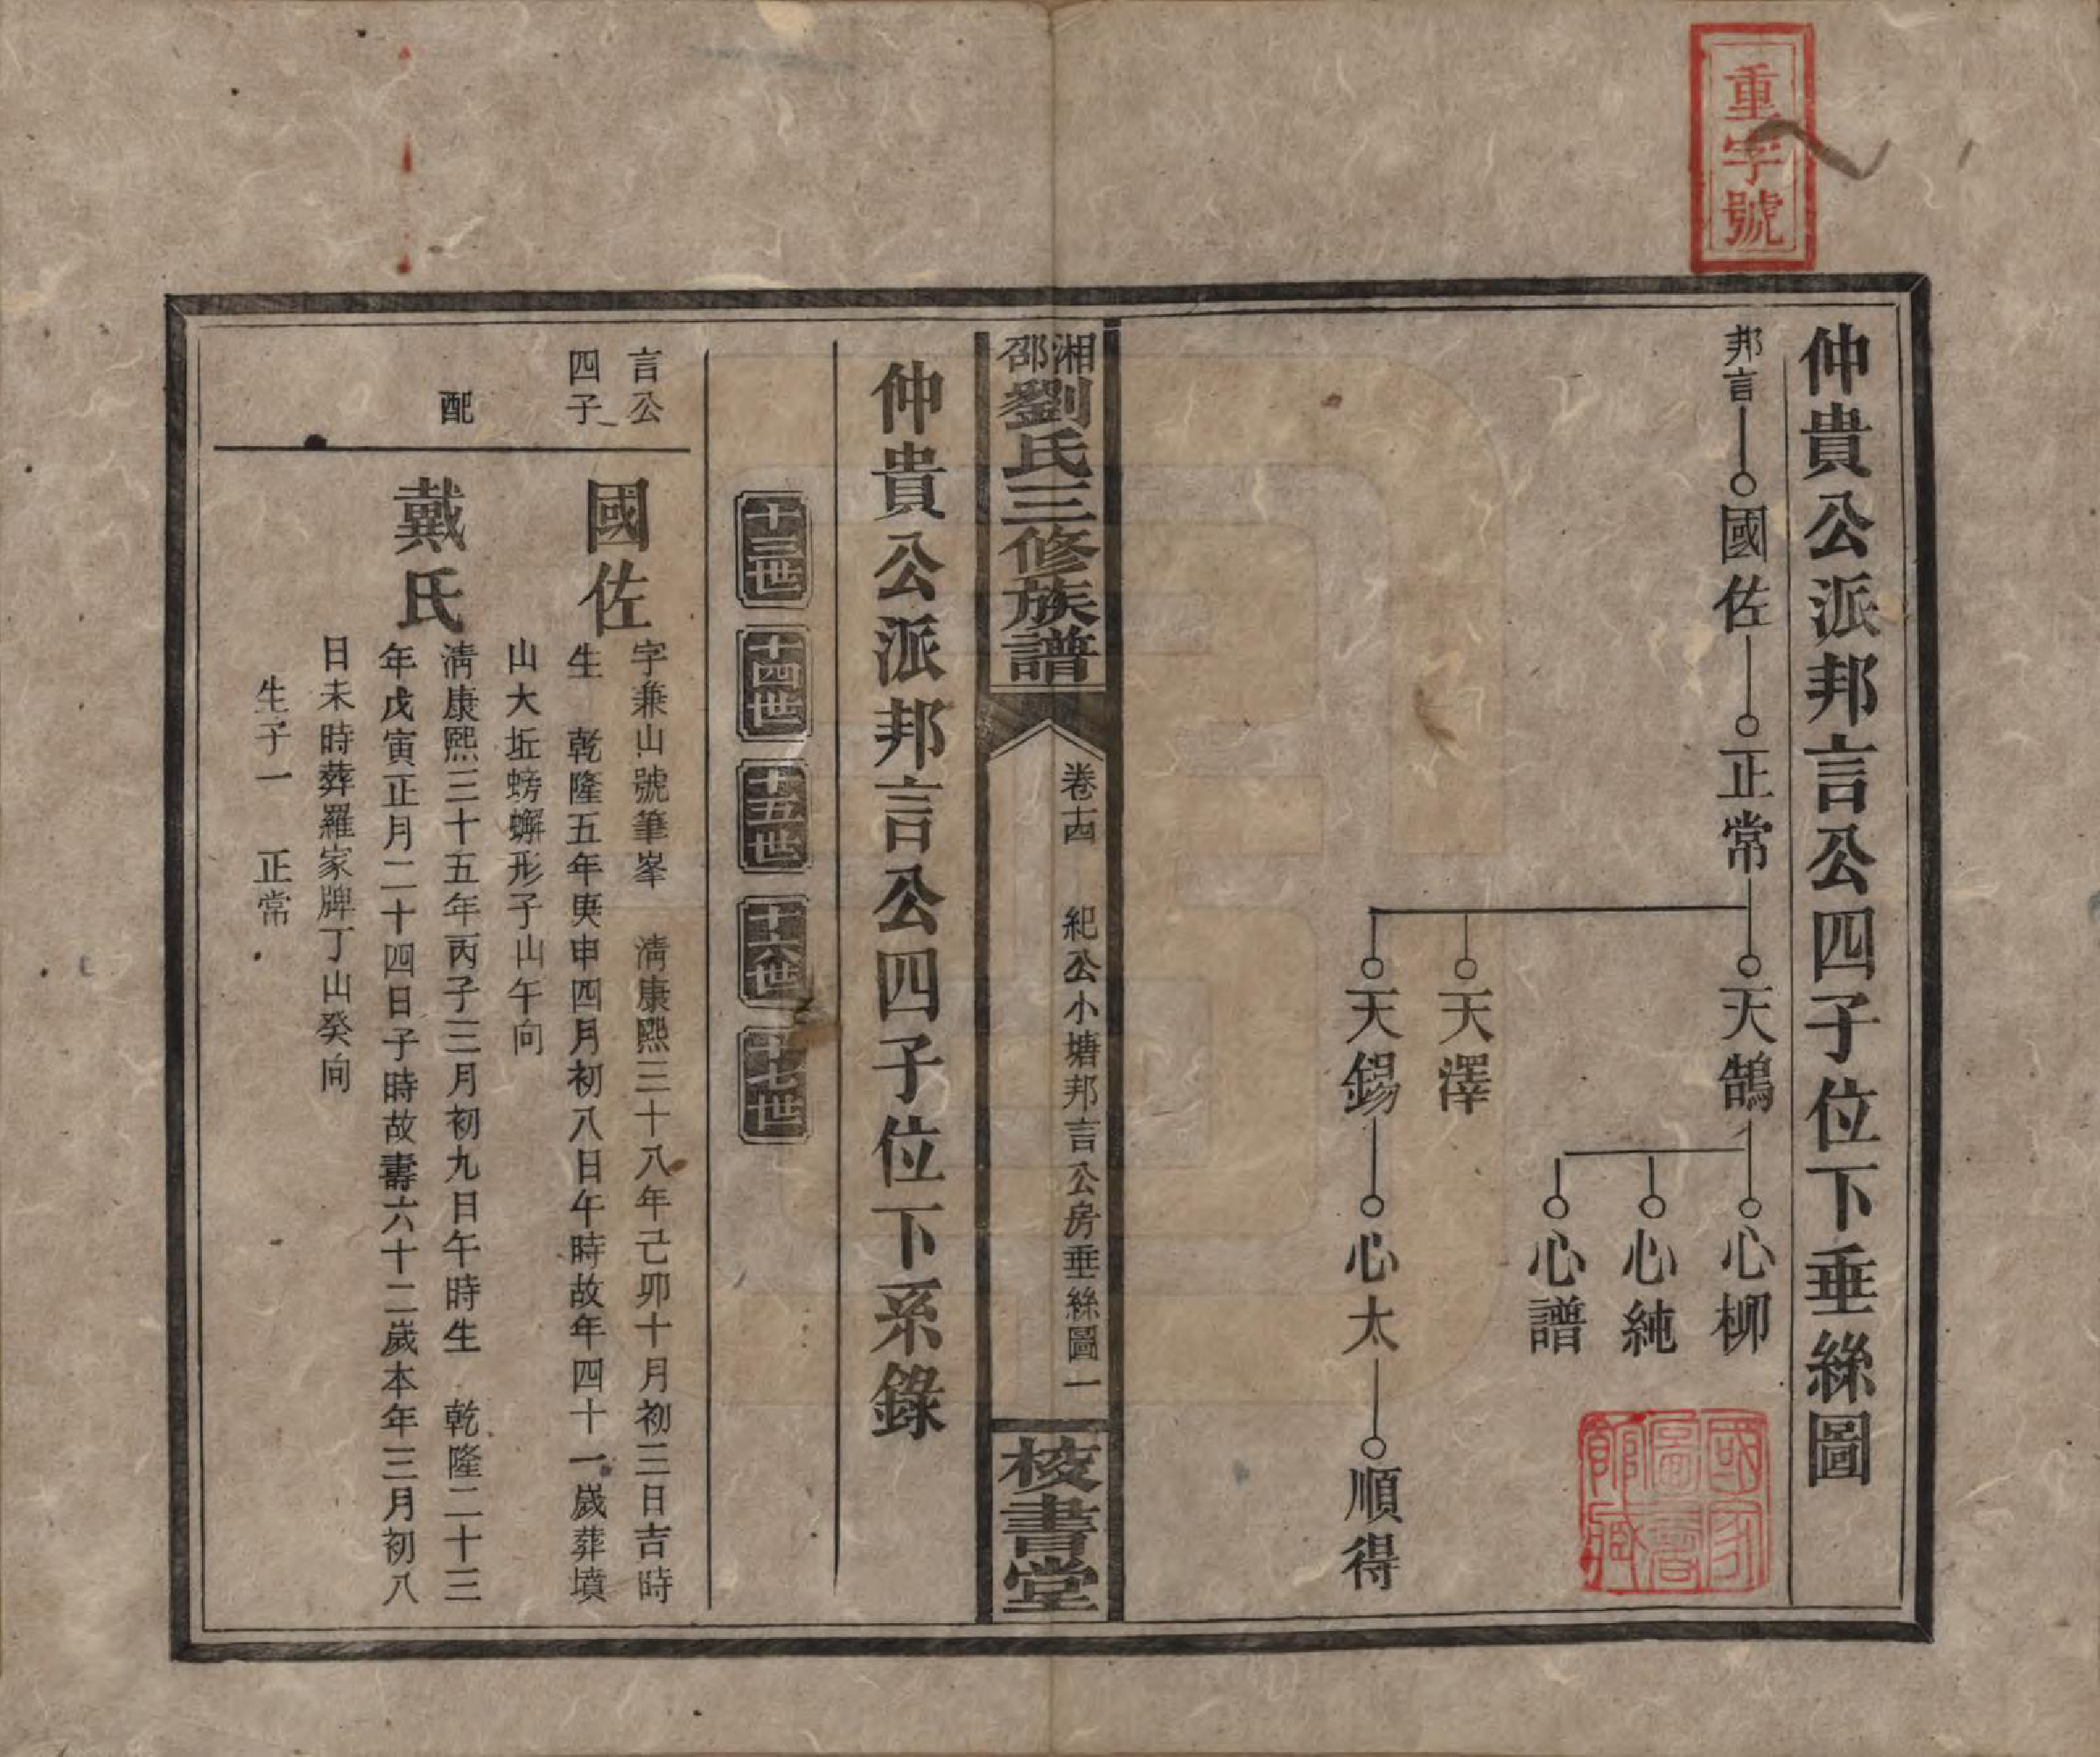 重字號
仲貴公派邦言公四子位下垂絲圖
邦言 國佐 正常 天鵠 心柳
心純
心譜
天澤
天錫 心太 順得
國家圖書館藏
湘邵劉氏三修族譜 卷十四 紀公小塘邦言公房垂絲圖一 校書堂
仲貴公派邦言公四子位下系錄
十三世 十四世 十五世 十六世 十七世
言公
四子
國佐
字兼山號筆峯 清康熙三十八年己卯十月初三日吉時
生 乾隆五年庚申四月初八日午時故年四十一歲葬墳
山大坵螃蠏形子山午向
配
戴氏
清康熙三十五年丙子三月初九日午時生 乾隆二十三
年戊寅正月二十四日子時故壽六十二歲本年三月初八
日未時葬羅家牌丁山癸向
生子一 正常